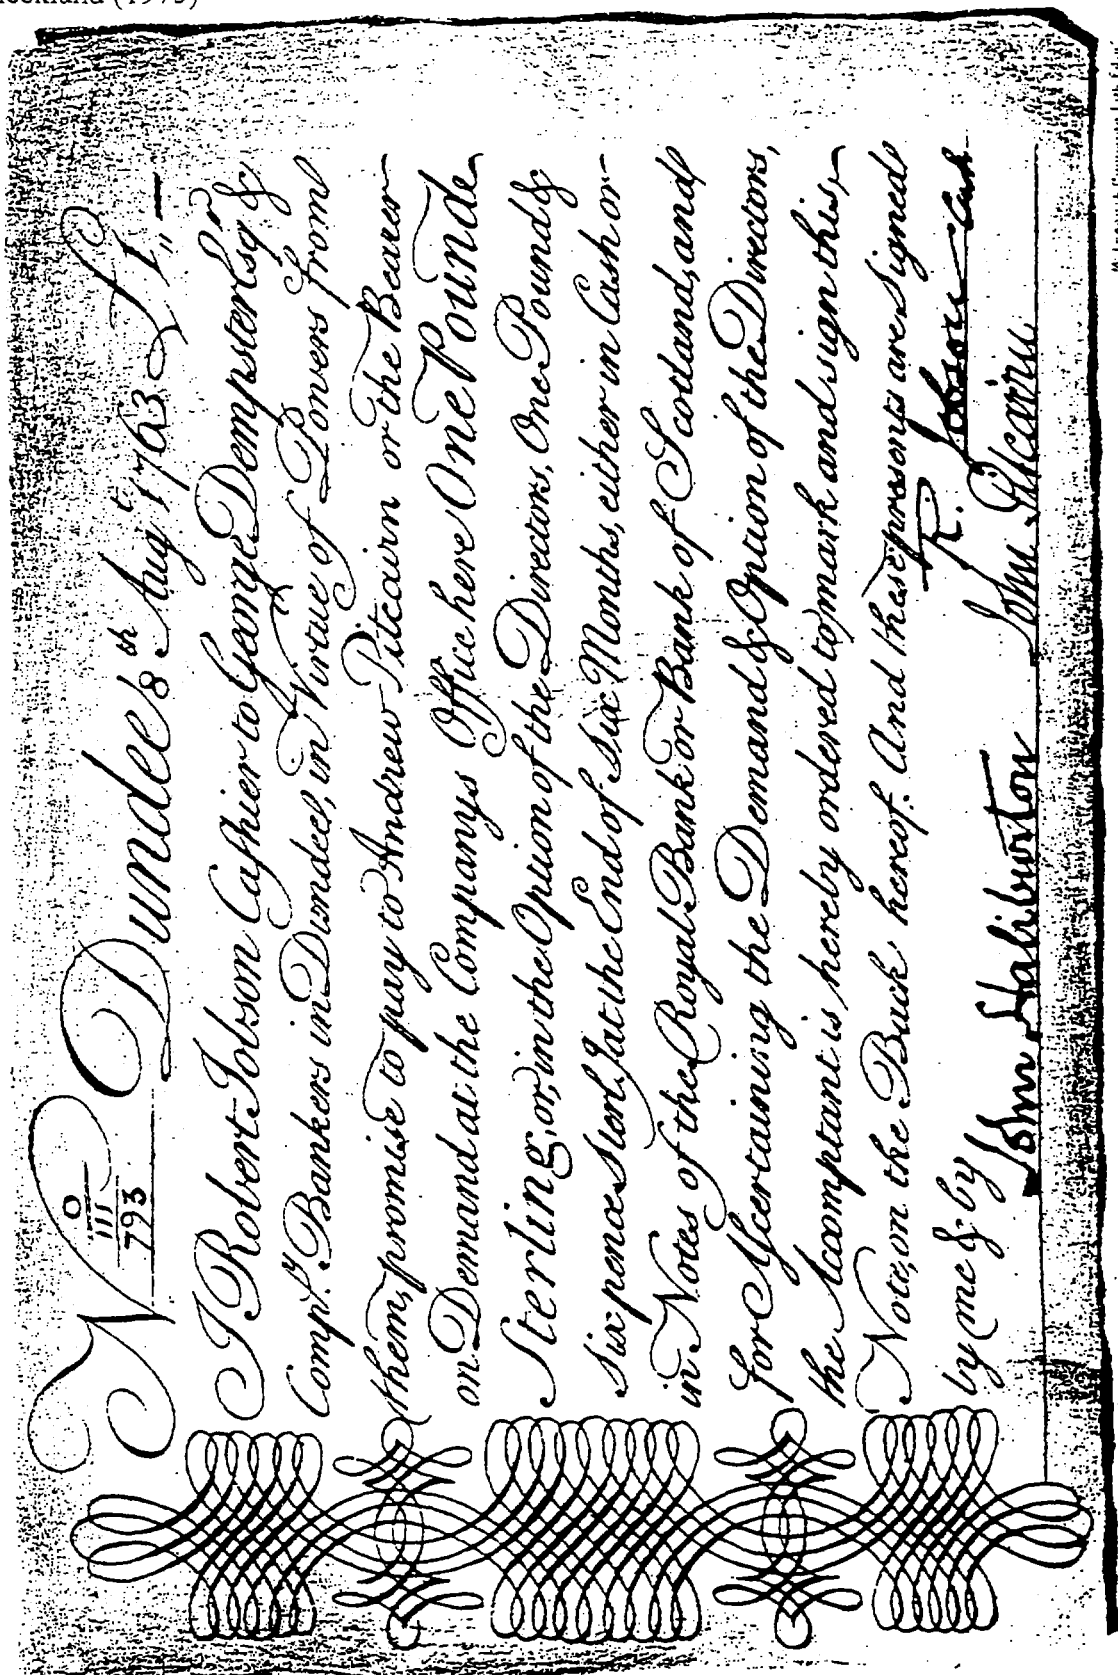 (1975)
No III/793 Dundee 8th Augt. 1763 £1,,—
I Robert Jobson Cashier to George Dempster Esqr. &
Compy. Bankers in Dundee, in Virtue of Powers from
them, promise to pay to Andrew Pitcairn or the Bearer
on Demand at the Companys Office here One Pound
Sterling, or, in the Option of the Directors, One Pound &
Sixpence Sterl. at the End of Six Months, either in Cash or
in Notes of the Royal Bank or Bank of Scotland, and
for Ascertaining the Demand & Option of the Directors,
the Accomptant is hereby ordered to mark and sign this
Note, on the Back hereof. And these presents are Signed
by me & by R. Jobson Cash
John Haliburton John Pitcairn